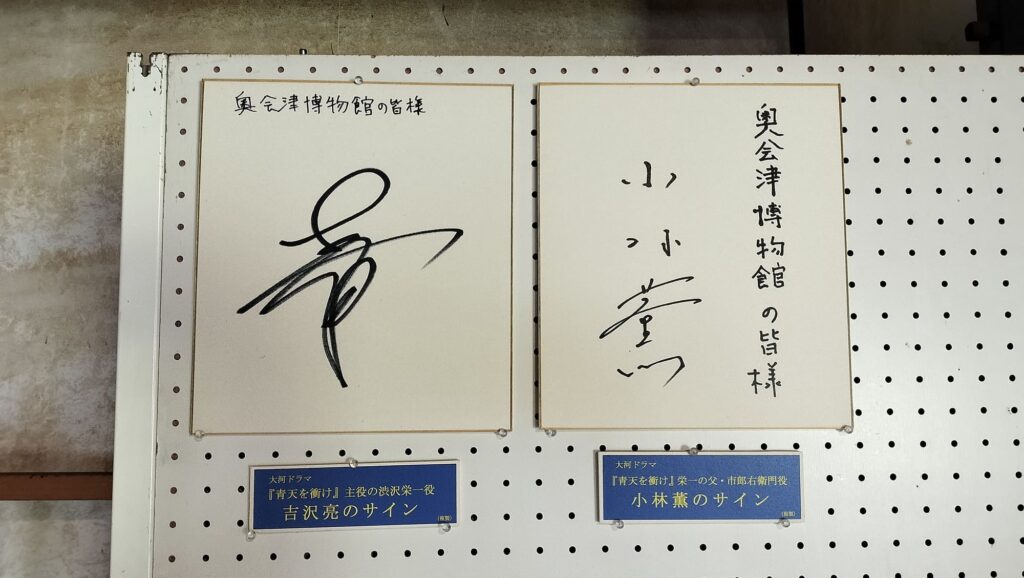 奥会津博物館の皆様
亮
大河ドラマ
『青天を衝け』主役の渋沢栄一役
吉沢亮のサイン
(複製)
奥会津博物館の皆様
小林薫
大河ドラマ
『青天を衝け』栄一の父・市郎右衛門役
小林薫のサイン
(複製)